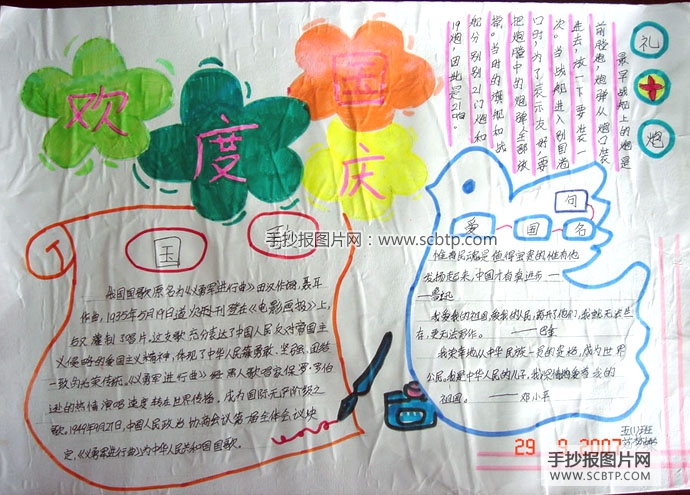 欢
度
国
庆
礼
炮
最早战船上的炮是
前膛炮,炮弹从炮口装
进去,放一下要装一
次。当战船进入别国港
口时,为了表示友好,要
把炮膛中的炮弹全部放
掉。当时的旗舰和战
船分别有21门炮和
19炮,因此是21响。
手抄报图片网:www.scbtp.com
国 歌
我国国歌原名为《义勇军进行曲》田汉作词,聂耳
作曲,1935年5月19日首次报刊登在《电影画报》上,
后又灌制了唱片。这支歌充分表达了中国人民反对帝国主
义侵略的爱国主义精神,体现了中华人民族勇敢、坚强、团结
一致的光荣传统。《义勇军进行曲》经黑人歌唱家保罗·罗伯
逊的热情演唱 速度转在世界传播,成为国际无产阶级之
歌。1949年9月27日,中国人民政治协商会议第一届全体会议决
定,《义勇军进行曲》为中华人民共和国国歌。
爱 国 名 句
惟有民魂是值得宝贵的,惟有他
发扬起来,中国才有真进步——
——鲁迅
我爱我的祖国,爱我的人民,离开了他们,我就无法生
存,更无法写作。 ——巴金
我荣幸地从中华民族一员的资格,成为世界
公民。我是中华人民的儿子,我深情地爱着我的
祖国。 ——邓小平
五(1)班
29 9 2007
手抄报图片网
WWW.SCBTP.COM